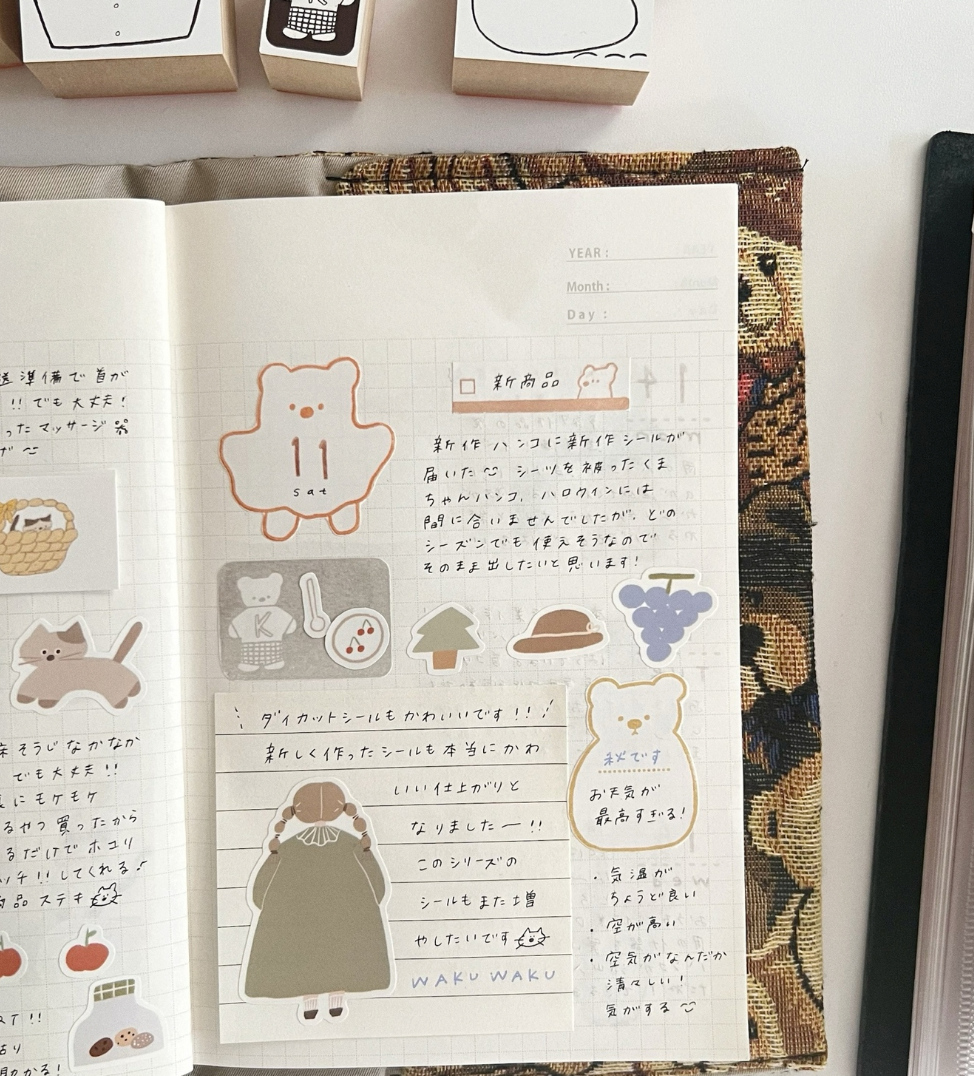 準備で首が
!! でも大丈夫!
ったマッサージ
そうじなかなか
でも大丈夫!!
にモケモケ
るやつ買ったから
るだけでホコリ
ッチ!! してくれる♪
品ステキ
!!
助かる!
YEAR:
Month:
Day:
11
sat
新商品
新作ハンコに新作シールが
届いた シーツを被ったくま
ちゃんハンコ、ハロウィンには
間に合いませんでしたが、どの
シーズンでも使えそうなので
そのまま出したいと思います!
K
ダイカットシールもかわいいです!!
新しく作ったシールも本当にかわ
いい仕上がりと
なりましたー!!
このシリーズの
シールもまた増
やしたいです
WAKU WAKU
秋です
お天気が
最高すぎる!
・気温が
ちょうど良い
・空が高い
・空気がなんだか
清々しい!
気がする